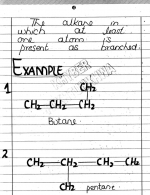 The alkane in
which at least
one atom is
present as branched.
EXAMPLE
1
CH₂
CH₂ CH₂ CH₂
Butane
2
CH₂ CH₂ CH₂ CH₂
CH₂ pentane